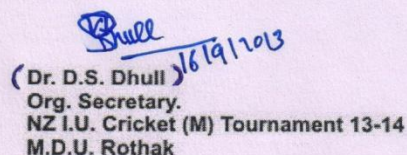 Dhull
16/9/2013
(Dr. D.S. Dhull)
Org. Secretary.
NZ I.U. Cricket (M) Tournament 13-14
M.D.U. Rothak